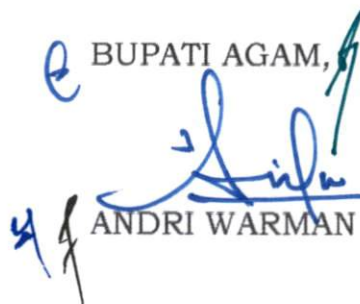 BUPATI AGAM,
ANDRI WARMAN